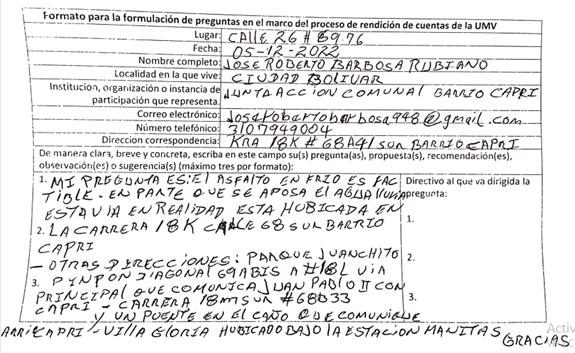 Formato para la formulación de preguntas en el marco del proceso de rendición de cuentas de la UMV
Lugar: CALLE 26 # 69.76
Fecha: 05-12-2022
Nombre completo: JOSE ROBERTO BARBOSA RUBIANO
Localidad en la que vive: CIUDAD BOLIVAR
Institución, organización o instancia de participación que representa. JUNTA ACCION COMUNAL BARRIO CAPRI
Correo electrónico: Joserobertobarbosa948@gmail.com
Número telefónico: 3107949004
Direccion correspondencia: KRA 18K # 68A41 SUR BARRIO CAPRI
De manera clara, breve y concreta, escriba en este campo su(s) pregunta(as), propuesta(s), recomendación(es), observación(es) o sugerencia(s) (máximo tres por formato):
Directivo al que va dirigida la pregunta:
1.
2.
3.
1. MI PREGUNTA ES: El ASFALTO EN FRIO ES FAC
TIBLE. EN PARTE QUE SE APOSA El AGUA lluvia
ESTA VIA EN REALIDAD ESTA HUBICADA EN
2. LA CARRERA 18K CALLE 68 SUR BARRIO
CAPRI
- OTRAS DIRECCIONES: PARQUE JUANCHITO
3. PINPON DIAGONAL 69ABIS A # 18L VIA
PRINCIPAL QUE COMUNICA JUAN PABLO II CON
CAPRI - CARRERA 18M SUR # 68B33
Y UN PUENTE EN El CAÑO QUE COMUNIQUE
CAPRI - VILLA GLORIA HUBICADO BAJO lA ESTACION MANITAS
GRACIAS